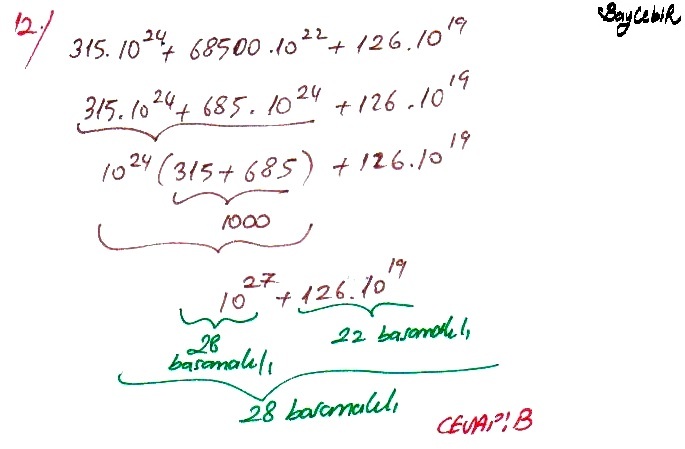 BayCebiR
12.)
315.10²⁴ + 68500.10²² + 126.10¹⁹
315.10²⁴ + 685.10²⁴ + 126.10¹⁹
10²⁴(315 + 685) + 126.10¹⁹
1000
10²⁷ + 126.10¹⁹
28 basamaklı, 22 basamaklı,
28 basamaklı,
CEVAP: B